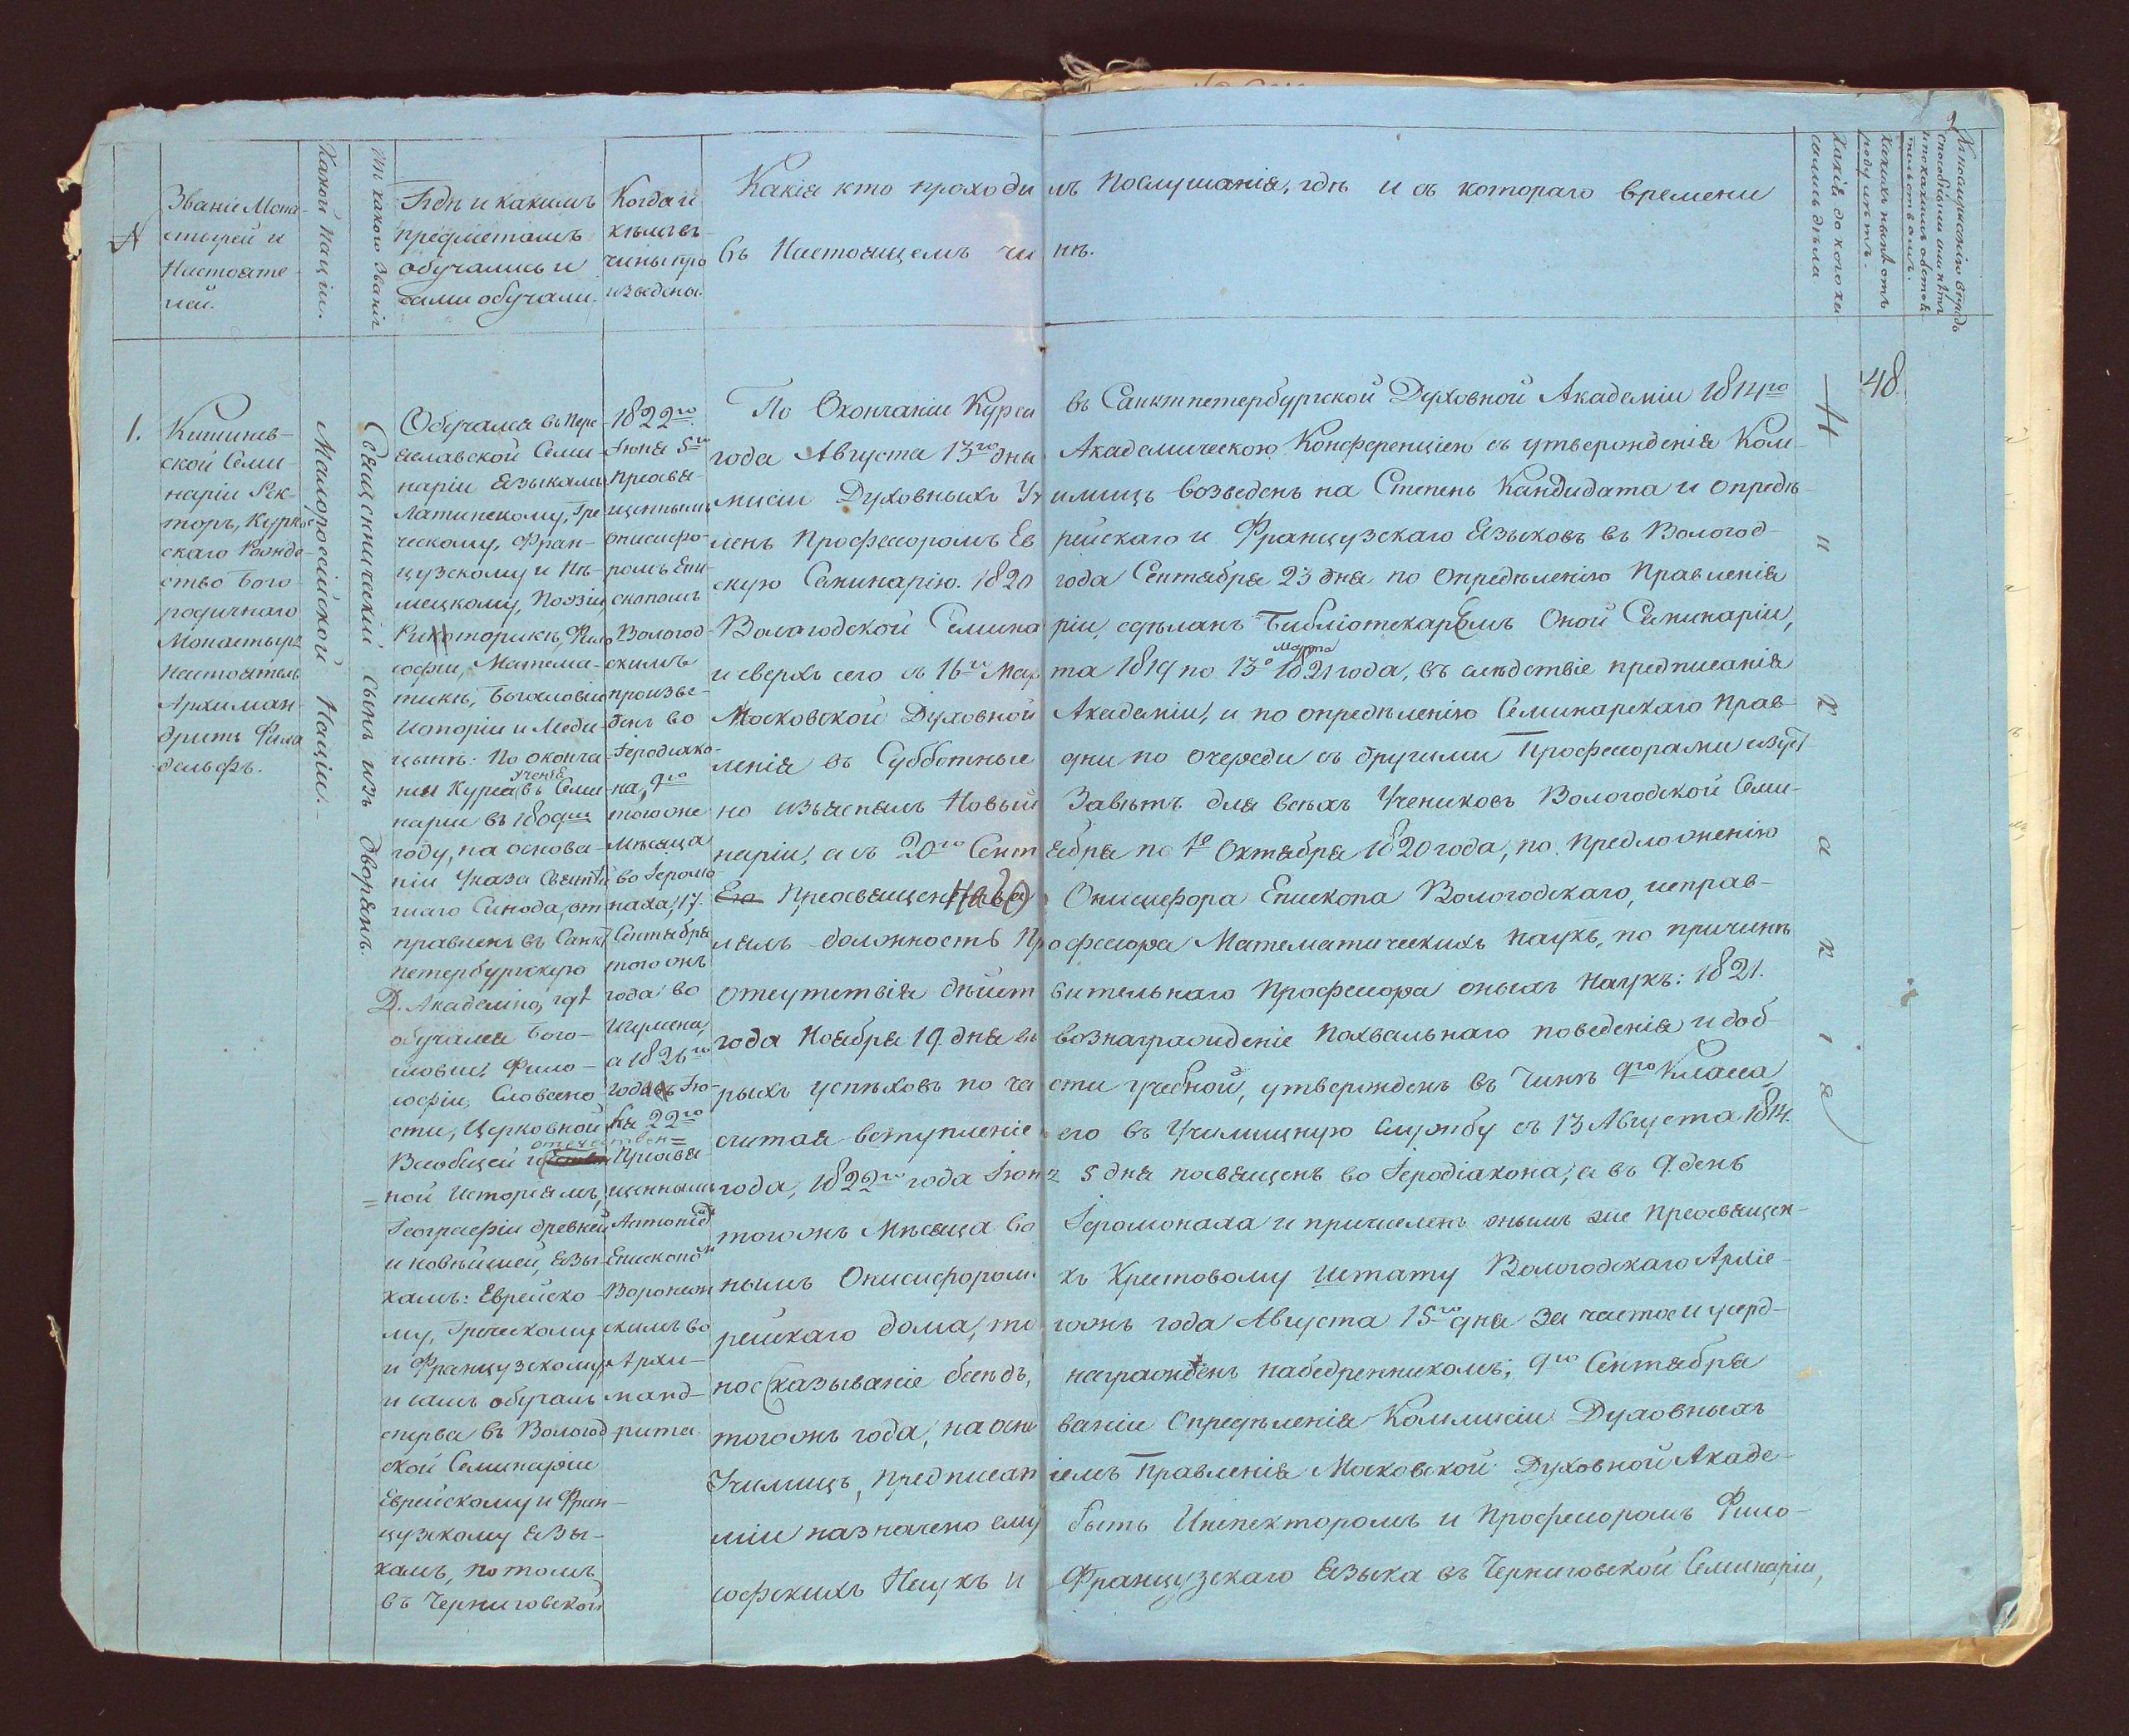 №
Званіе Мона-
стырей и
Настояте-
лей.
Какой Націи.
Изъ какого званія
Гдѣ и какимъ
предметамъ
обучались и
сами обучали.
Когда и
кѣмъ въ
чины про
изведены.
Какія кто проходилъ Послушанія, гдѣ и съ котораго времени
въ Настоящемъ чинѣ.
Какія до кого ка-
сались дѣла
Какихъ нынѣ отъ
роду лѣтъ.
1.
Кишинев-
ской Семи-
наріи Рек-
торъ, Курков-
скаго Рожде-
ства Бого-
родичнаго
Монастыря
Настоятель
Архиман-
дритъ Фила
дельфъ.
Малороссійской Націи.
Священническій сынъ изъ дворянъ.
Обучался въ Пере-
яславской Семи-
наріи языкамъ
Латинскому, Гре
ческому, Фран-
цузскому и Нѣ-
мецкому, Поэзіи
Риторикѣ, Фило
софіи, Матема-
тикѣ, Богословіи
Исторіи и Меди-
цынѣ. По оконча
ніи Курса ученія въ Семи-
наріи въ 1809мъ
году, на основа-
ніи Указа Святѣй
шаго Синода, от
правленъ въ Санкт
петербургскую
Д. Академію, гдѣ
обучался Бого-
словіи, Фило-
софіи, Словесно
сти, Церковной
Всеобщей и отечествен=
=ной Исторіямъ,
Географіи древней
и новѣйшей, язы
камъ: Еврейско
му, Греческому
и Французскому,
и самъ обучалъ
сперва въ Вологод
ской Семинаріи
Еврейскому и Фран-
цузскому язы-
камъ, потомъ
въ Черниговской
1822го
Іюня 5го
Преосвя-
щеннымъ
Онисифо-
ромъ Епи-
скопомъ
Вологод-
скимъ
произве-
денъ во
Іеродіако-
на, 9го
тогоже
Мѣсяца
во Іеромо-
наха, 17.
Сентября
тогожъ
года во
Игумена,
а 1826го
года Ію-
ля 22го
Преосвя-
щеннымъ
Антоніемъ
Епископомъ
Воронеж
скимъ во
Архи-
манд-
рита.
По Окончаніи Курса въ Санктпетербургской Духовной Академіи 1814го
года Августа 13го дня Академическою Конференціею съ утвержденія Ком-
мисіи Духовныхъ Училищъ возведенъ на Степень Кандидата и опредѣ-
ленъ Профессоромъ Еврейскаго и Французскаго Языковъ въ Вологод-
скую Семинарію. 1820 года Сентября 23 дня по Опредѣленію Правленія
Вологодской Семинаріи, сдѣланъ Библіотекаремъ Оной Семинаріи,
и сверхъ сего съ 16го Марта 1819 по 13е Марта 1821 года, въ слѣдствіе предписанія
Московской Духовной Академіи, и по опредѣленію Семинарскаго Прав-
ленія въ Субботные дни по очереди съ другими Профессорами изуст-
но изъяснялъ Новый Завѣтъ для всѣхъ Учениковъ Вологодской Семи-
наріи, а съ 20го Сентября по 1е Октября 1820 года, по Предложенію
Его Преосвященства Онисифора Епископа Вологодскаго, исправ-
лялъ должность Профессора Математическихъ наукъ, по причинѣ
Отсутствія дѣйствительнаго Профессора оныхъ Наукъ: 1821.
года Ноября 19. дня въ вознагражденіе похвальнаго поведенія и доб-
рыхъ успѣховъ по части учебной, утвержденъ въ Чинѣ 9го Класса,
считая вступленіе его въ Училищную службу съ 13 Августа 1814.
года, 1822го года Іюня 5 дня посвященъ во Іеродіакона, а въ 9. день
тогожъ Мѣсяца во Іеромонаха и причисленъ онымъ же Преосвящен-
нымъ Онисифоромъ къ Крестовому Штату Вологодскаго Архіе-
рейскаго дома, тогожъ года Августа 15го дня за частое и усерд-
ное сказываніе бесѣдъ, награжденъ набедренникомъ; 9го Сентября
тогожъ года, на основаніи Опредѣленія Коммисіи Духовныхъ
Училищъ, предписаніемъ Правленія Московской Духовной Акаде-
міи назначено ему быть Инспекторомъ и Профессоромъ Фило-
софскихъ Наукъ и Французскаго Языка въ Черниговской Семинаріи,
Не касались
48.